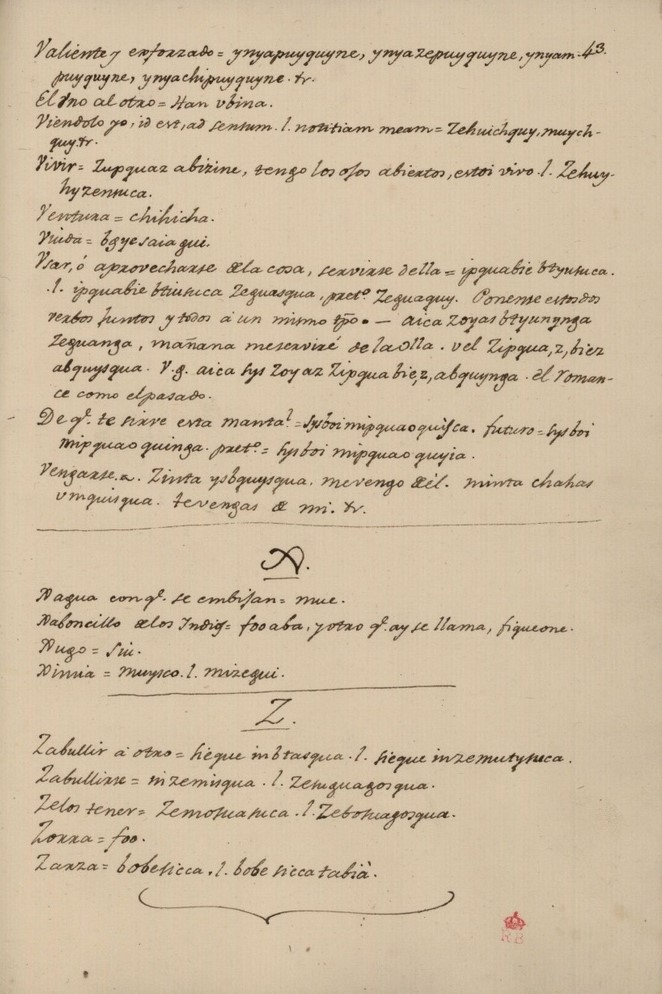 43.
Valiente y exforzado = ynyapuyquyne, ynyazepuyquyne, ynyam-
puyquyne, ynyachipuyquyne. tr.
El vno al otro = Han vbina.
Viendolo yo, id est, ad sensum. l. notitiam meam = Zehuichquy, muych-
quy. tr.
Vivir = Zupquaz abizine, tengo los ojos abiertos, estoi vivo. l. Zehuy-
hyzensuca.
Ventura = chihicha.
Viuda = bgyesaia gui.
Vsar, ó aprovecharse de la cosa, servirse della = ipquabie btyusuca.
.l. ipquabie btiusuca Zeguasqua, pretº. Zeguaquy. Ponense estos dos
verbos juntos y todos á un mismo tpō. — aica Zoyas btyunynga
Zeguanga, mañana me serviré de la olla. vel Zipqua, z, biez
abquysqua. V.g. aica hys Zoyaz Zipqua bie, z, abquynga. el roman-
ce como el pasado.
De q.e te sirve esta manta? = sysboi mipquao quisca. futuro = sys boi
mipquao quinga. pretº. = sys boi mipquao quyia.
Vengarse. Zinta ysbquysqua. me vengo de él. minta chahas
vmquisqua. te vengas de mi. tr.
X.
Xagua con q.e se embijan = mue.
Xaboncillo de los Indios = fooaba, y otro q.e ay se llama, fiqueone.
Xugo = siu.
Ximia = muysco. l. mizegui.
Z.
Zabullir á otro = sieque inbtasqua. l. sieque inzemutysuca.
Zabullirse = inzemisqua. l. Zensuagosqua.
Zelos tener = Zemosuasuca. l. Zebosuagosqua.
Zorra = foo.
Zarza = bobesicca. l. bobe sicca tabiâ.
RB